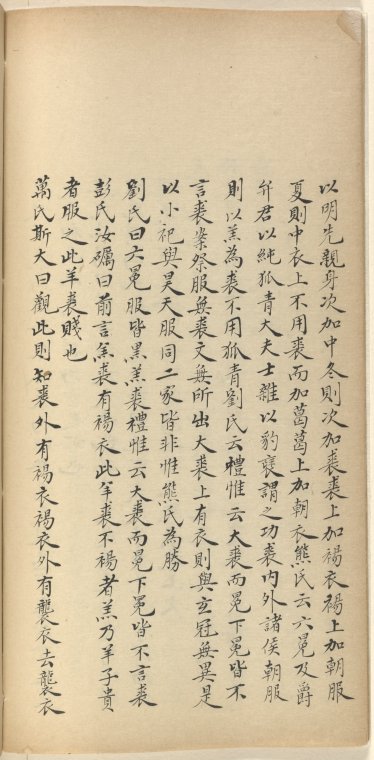 以明先親身次加中冬則次加裘裘上加裼衣裼上加朝服
夏則中衣上不用裘而加葛葛上加朝衣熊氏云六冕及爵
弁君以純狐青大夫士雜以豹褎謂之功裘内外諸侯朝服
則以羔為裘不用狐青劉氏云禮惟云大裘而冕下冕皆不
言裘案祭服無裘文無所出大裘上有衣則與玄冠無異是
以小祀與昊天服同二家皆非惟熊氏為勝
劉氏曰六冕服皆黑羔裘禮惟云大裘而冕下冕皆不言裘
彭氏汝礪曰前言羔裘有裼衣此羊裘不裼者羔乃羊子貴
者服之此羊裘賤也
萬氏斯大曰觀此則知裘外有裼衣裼衣外有襲衣去襲衣